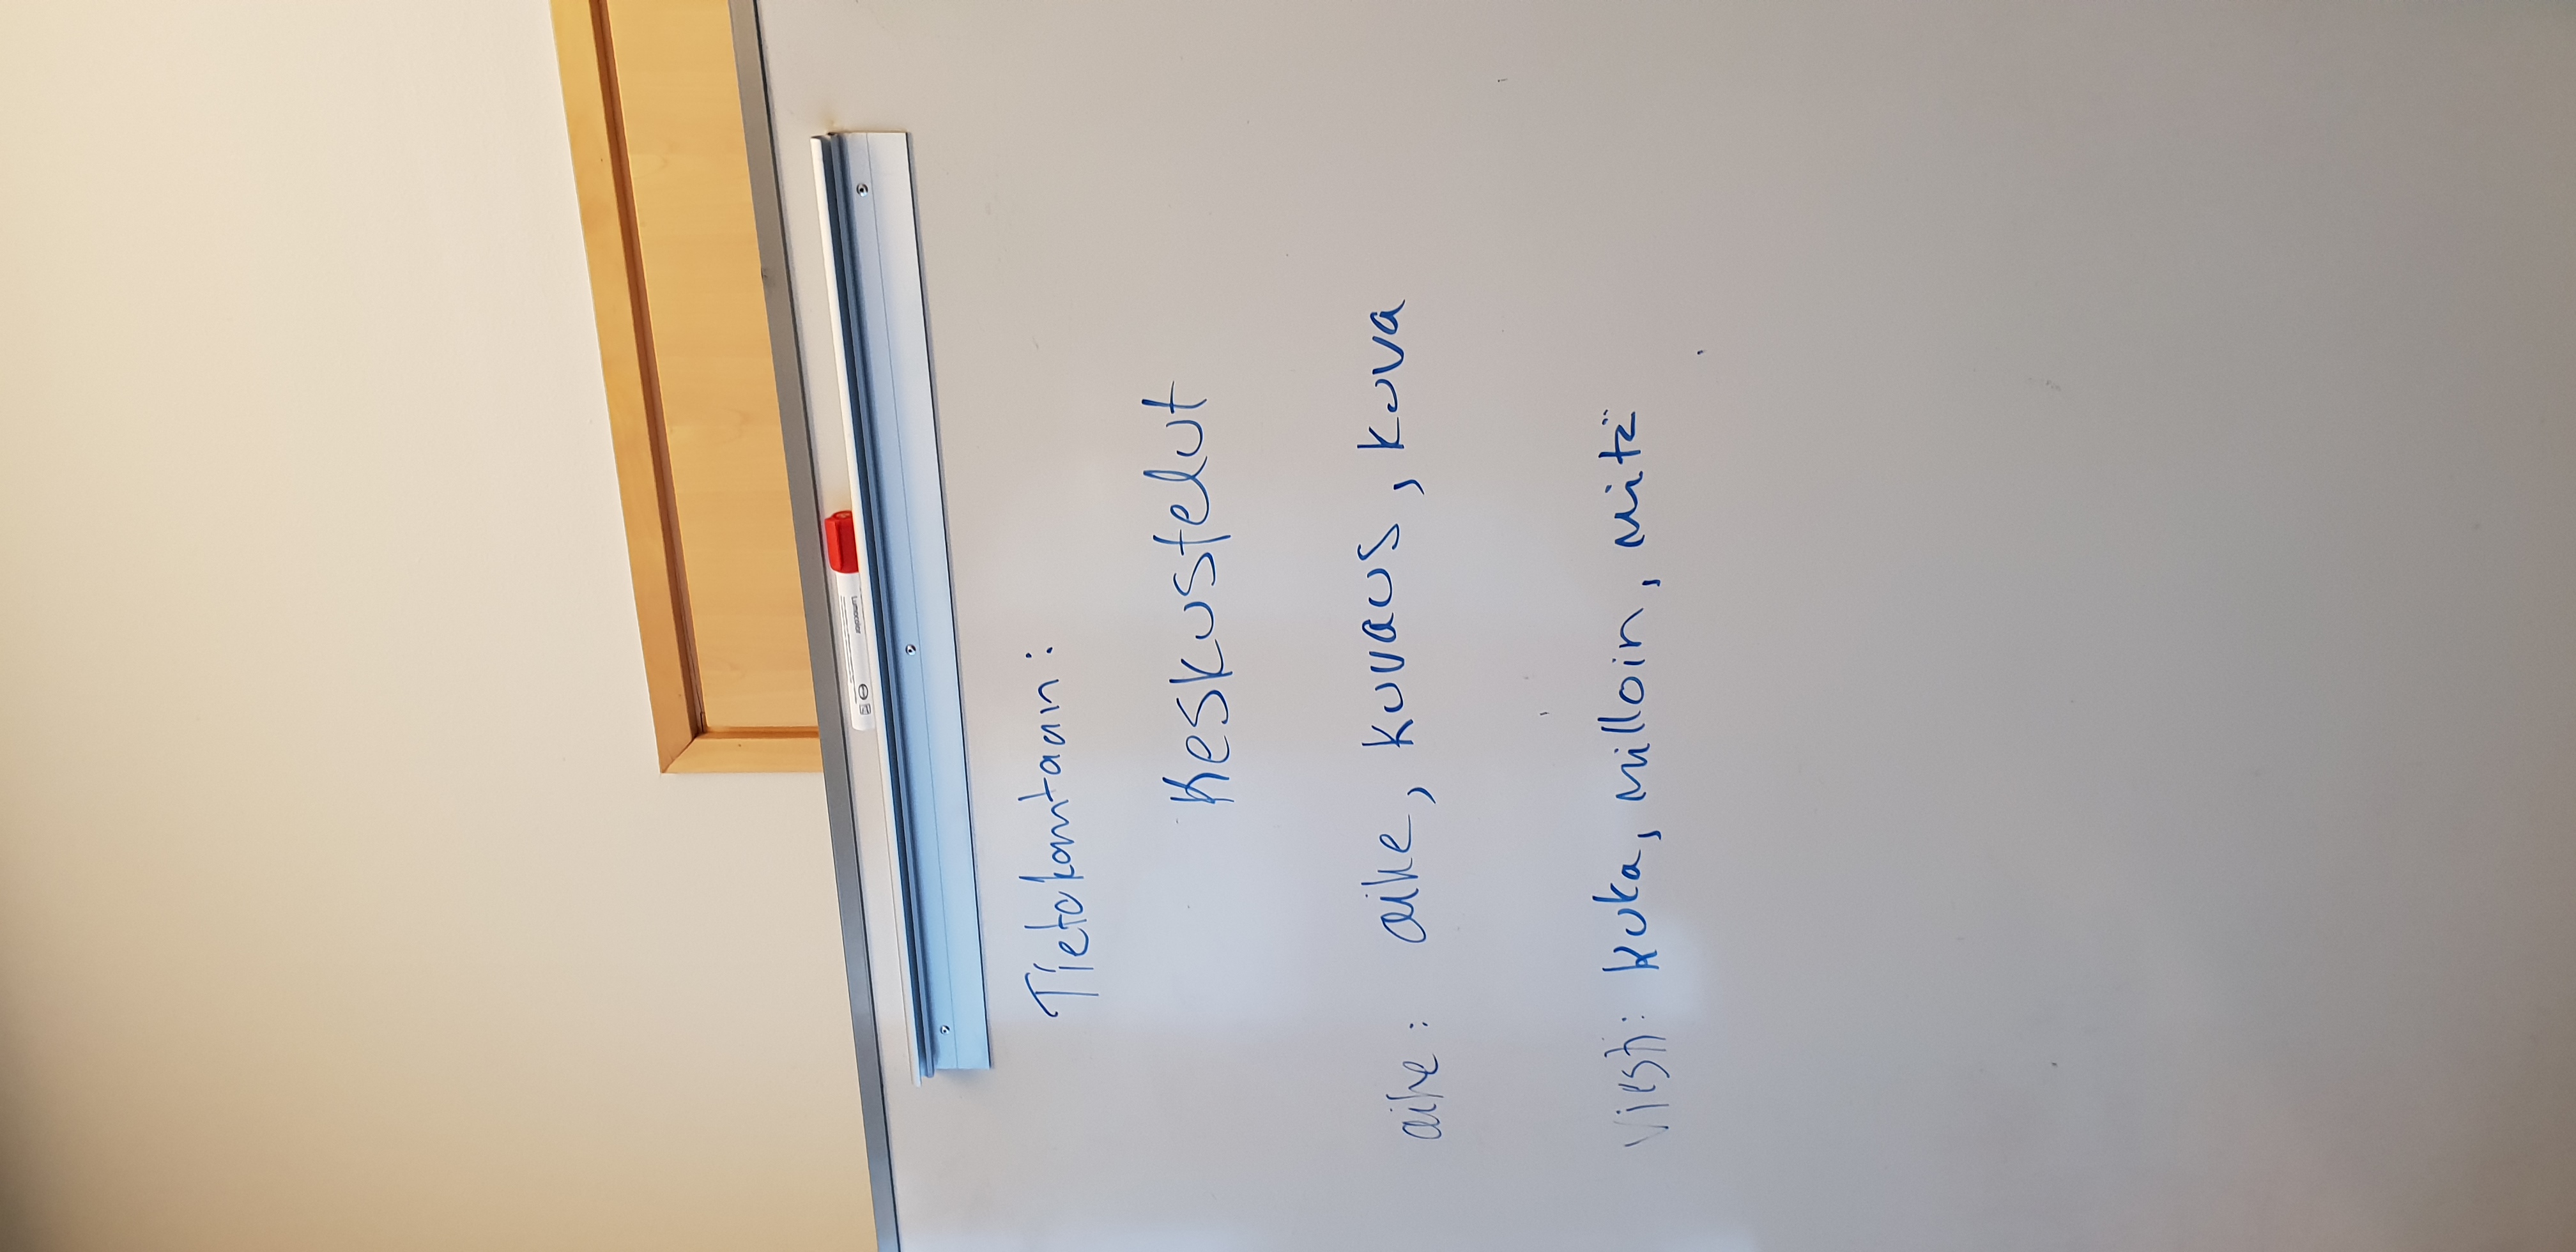 Lumocolor
Tietokantaan:
Keskustelut
aihe: aihe, kuvaus, kuva
viesti: kuka, milloin, mitä